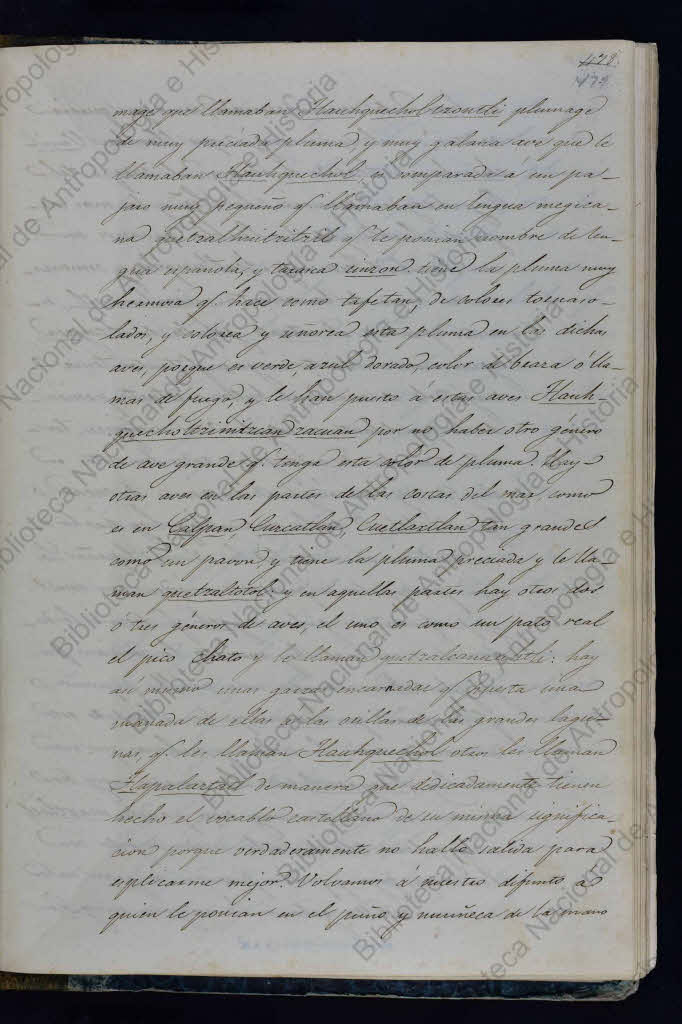 478
479
mage que llamaban Tlauhquecholtzontli plumage
de muy preciada pluma, y muy galana ave que le
llamaban Tlauhquechol, es comparada á un pa-
jaro muy pequeño q.ᵉ llamaban en lengua megica-
na quetzalhuitzitzil q.ᵉ le ponian nombre de len-
gua española, y tarasca cinzon tiene la pluma muy
hermosa q.ᵉ hace como tafetan, de colores tornaso-
lados, y colorea y señorea esta pluma en las dichas
aves, porque es verde, azul dorado, color de beara ó lla-
mas de fuego, y le han puesto á estas aves Tlauh-
quecholtzinitzcan zacuan por no haber otro género
de ave grande q.ᵉ tenga este color de pluma. Hay
otras aves en las partes de las costas del mar, como
es en Calpan, Cuzcatlan, Cuetlaxtlan tan grandes
como un pavon, y tiene la pluma preciada y le lla-
man quetzaltotol: y en aquellas partes hay otros dos
ó tres géneros de aves, el uno es como un pato real
el pico chato y lo llaman quetzalcanauhtli: hay
así mismo unas garzas encarnadas q.ᵉ una
manada de ellas á las orillas de las grandes lagu-
nas, q.ᵉ les llaman Tlauhquechol otros las llaman
Tlapalaztatl de manera que dedicadamente tienen
hecho el vocablo castellano de su misma significa-
cion porque verdaderamente no hallo salida para
esplicarme mejor. Volvamos á nuestro difunto á
quien le ponian en el puño, y muñeca de la mano
Biblioteca Nacional de Antropología e Historia